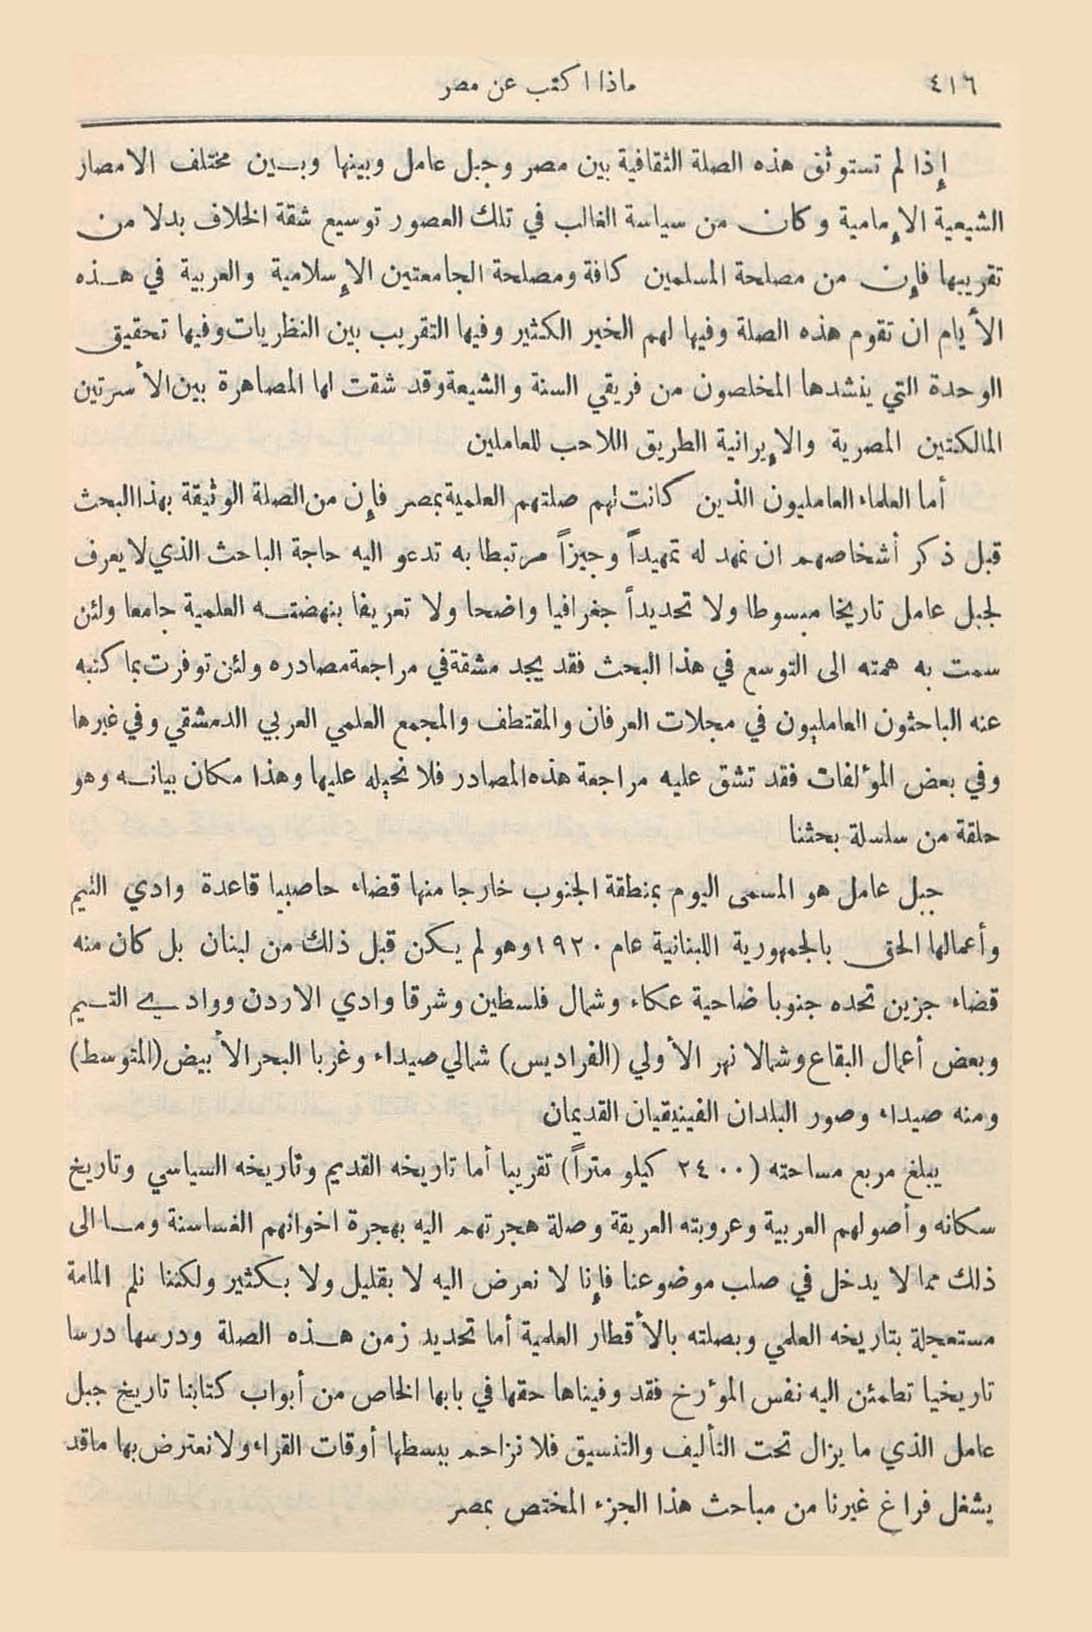 ٤١٦
ماذا اكتب عن مصر
إذا لم تستوثق هذه الصلة الثقافية بين مصر وجبل عامل وبينها وبين مختلف الامصار
الشيعية الإمامية وكان من سياسة الغالب في تلك العصور توسيع شقة الخلاف بدلا من
تقريبها فإن من مصلحة المسلمين كافة ومصلحة الجامعتين الإسلامية والعربية في هذه
الأيام ان تقوم هذه الصلة وفيها لهم الخير الكثير وفيها التقريب بين النظريات وفيها تحقيق
الوحدة التي ينشدها المخلصون من فريقي السنة والشيعة وقد شقت لها المصاهرة بين الأسرتين
المالكتين المصرية والإيرانية الطريق اللاحب للعاملين
أما العلماء العامليون الذين كانت لهم صلتهم العلمية بمصر فإن من الصلة الوثيقة بهذا البحث
قبل ذكر أشخاصهم ان نمهد له تمهيداً وجيزاً مرتبطا به تدعو اليه حاجة الباحث الذي لا يعرف
لجبل عامل تاريخا مبسوطا ولا تحديداً جغرافيا واضحا ولا تعريفا بنهضته العلمية جامعا ولئن
سمت به همته الى التوسع في هذا البحث فقد يجد مشقة في مراجعة مصادره ولئن توفرت بما كتبه
عنه الباحثون العامليون في مجلات العرفان والمقتطف والمجمع العلمي العربي الدمشقي وفي غيرها
وفي بعض المؤلفات فقد تشق عليه مراجعة هذه المصادر فلا نحيله عليها وهذا مكان بيانه وهو
حلقة من سلسلة بحثنا
جبل عامل هو المسمى اليوم بمنطقة الجنوب خارجا منها قضاء حاصبيا قاعدة وادي التيم
وأعمالها الحق بالجمهورية اللبنانية عام ١٩٢٠ وهو لم يكن قبل ذلك من لبنان بل كان منه
قضاء جزين تحده جنوبا ضاحية عكاء وشمال فلسطين وشرقا وادي الاردن ووادي التيم
وبعض أعمال البقاع وشمالا نهر الأولي (الفراديس) شمالي صيداء وغربا البحر الأبيض (المتوسط)
ومنه صيداء وصور البلدان الفينيقيان القديمان
يبلغ مربع مساحته (٢٤٠٠ كيلو متراً) تقريبا أما تاريخه القديم وتاريخه السياسي وتاريخ
سكانه وأصولهم العربية وعروبته العريقة وصلة هجرتهم اليه بهجرة اخوانهم الغساسنة وما الى
ذلك مما لا يدخل في صلب موضوعنا فإنا لا نعرض اليه لا بقليل ولا بكثير ولكننا نلم المامة
مستعجلة بتاريخه العلمي وبصلته بالأقطار العلمية أما تحديد زمن هذه الصلة ودرسها درسا
تاريخيا تطمئن اليه نفس المؤرخ فقد وفيناها حقها في بابها الخاص من أبواب كتابنا تاريخ جبل
عامل الذي ما يزال تحت التأليف والتنسيق فلا نزاحم ببسطها أوقات القراء ولا نعترض بها ما قد
يشغل فراغ غيرنا من مباحث هذا الجزء المختص بمصر